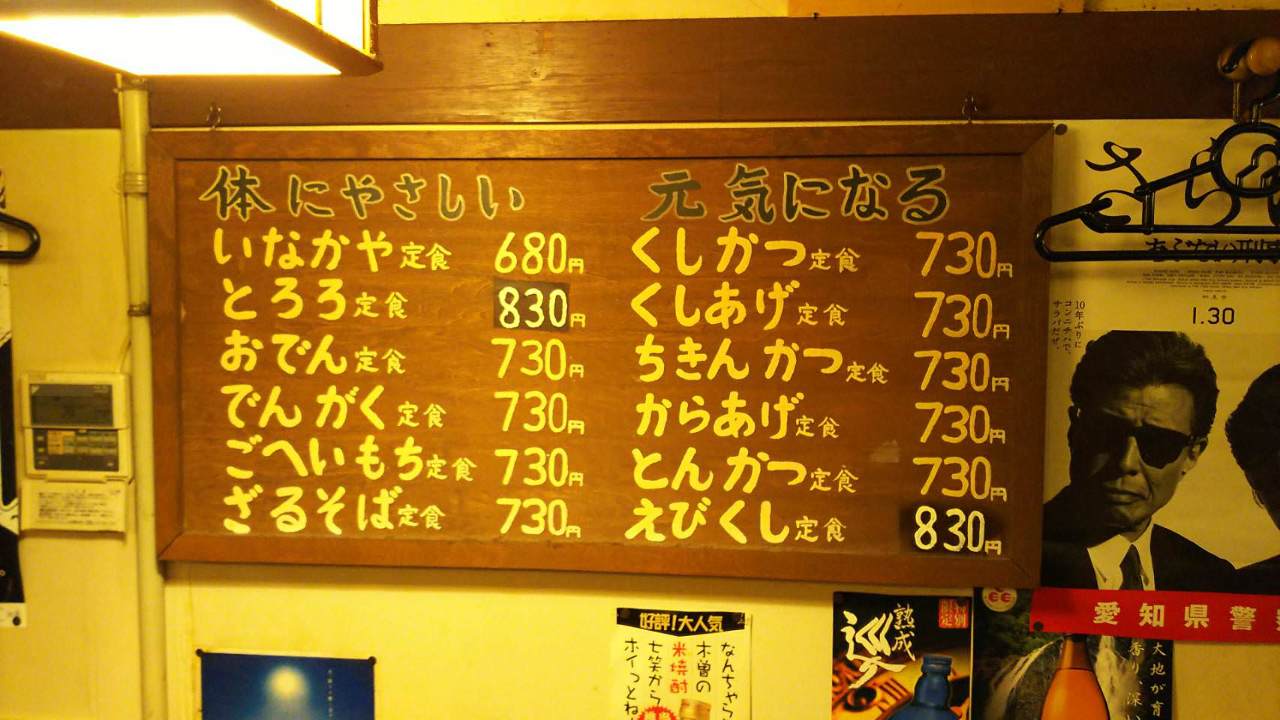 体にやさしい
いなかや定食 680円
とろろ定食 830円
おでん定食 730円
でんがく定食 730円
ごへいもち定食 730円
ざるそば定食 730円
元気になる
くしかつ定食 730円
くしあげ定食 730円
ちきんかつ定食 730円
からあげ定食 730円
とんかつ定食 730円
えびくし定食 830円
あぶない刑事
10年ぶりに
コンニチハで、
サラバだぜ。
1.30
愛知県警
好評!大人気
なんちゃら
木曽の
米焼酎
七笑から
ホイっとね
特別
限定
熟成
大地が育
香り、深